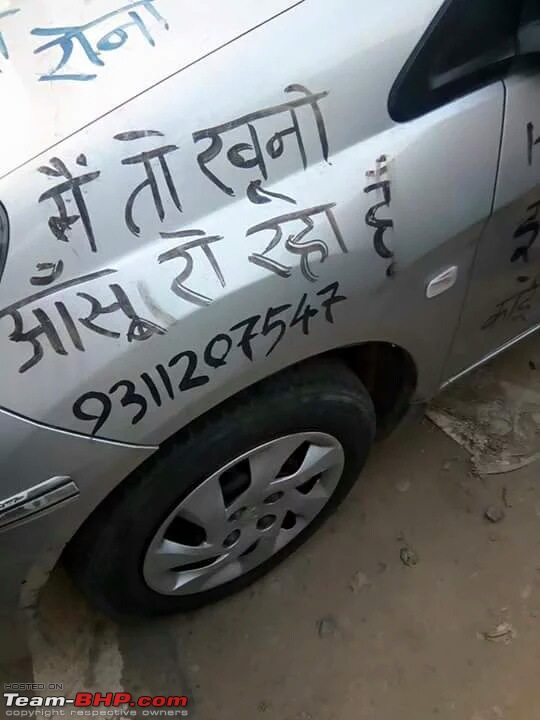 राना
मैं तो खूनो
आँसू रो रहा हूँ
9311207547
HOSTED ON
Team-BHP.com
copyright respective owners